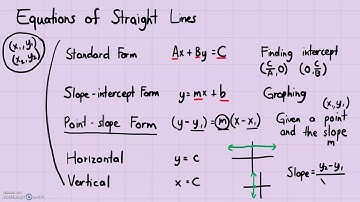 Equations of Straight Lines
(x₁, y₁)
(x₂, y₂)
Standard Form Ax + By = C Finding intercept
(C/A, 0) (0, C/B)
Slope-intercept Form y = mx + b Graphing
Point-slope Form (y - y₁) = m(x - x₁) Given a point (x₁, y₁)
and the slope
m
Horizontal y = c
Vertical x = c
Slope = y₂ - y₁